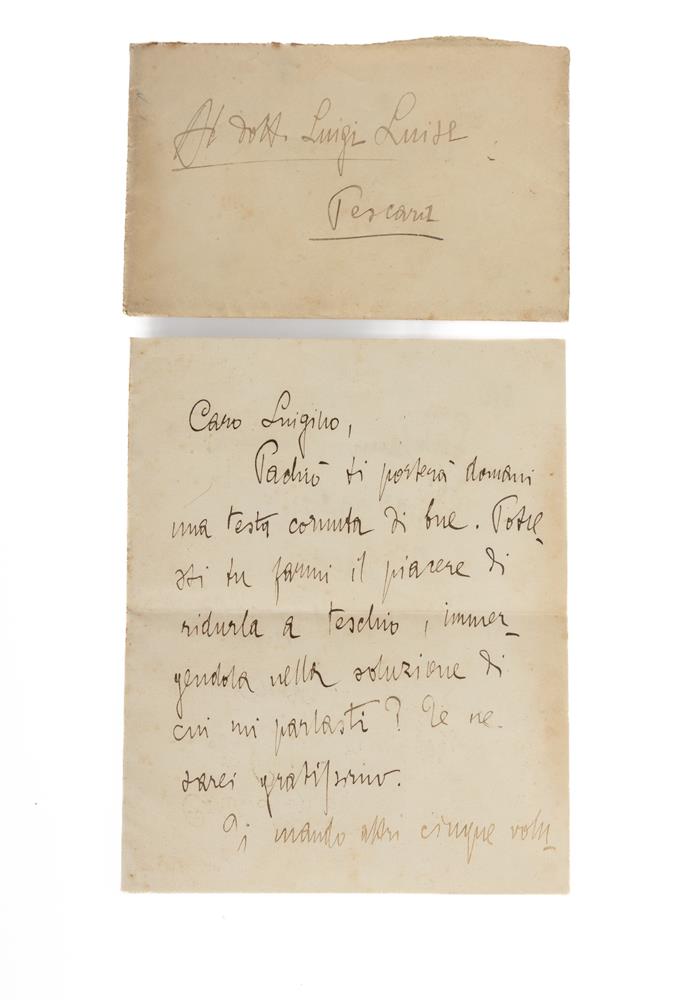 Al dott. Luigi Luise
Pescara
Caro Luigino,
ti porterà domani
una testa cornuta di bue. Potre-
sti tu farmi il piacere di
ridurla a teschio, immer-
gendola nella soluzione di
cui mi parlasti? Te ne
sarei gratissimo.
Ti mando altri cinque volu-